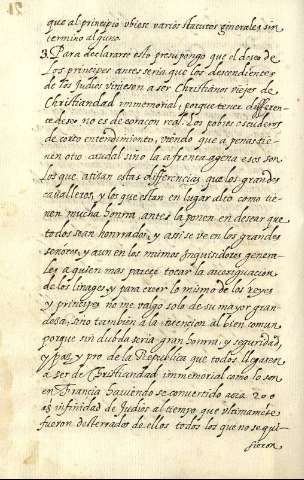 que al principio ubiese varios statutos generales sin
termino alguno.
3. Para declararse esto presupongo que el deseo de
los principes antes seria que los descendientes
de los Judios viniesen a ser Christianos viejos de
Christiandad immemorial, porque tener differen-
te deseo no es de coraçon real. Los pobres escuderos
de corto entendimiento, viendo que apenas tie-
nen otro caudal sino la afrenta agena esos son
los que atizan estas differencias que los grandes
cavalleros, y los que estan en lugar alto como tie-
nen mucha honrra antes la ponen en desear que
todos sean honrrados, y assi se ve en los grandes
señores, y aun en los mismos Inquisidores genera-
les a quien mas parece tocar la averiguacion
de los linages, y para creer lo mismo de los reyes
y principes no me valgo solo de su mayor gran-
desa, sino tambien a la atencion al bien comun
porque sin dubda seria gran honrra, y seguridad,
y paz, y pro de la Republica que todos llegasen
a ser de Christiandad immemorial como lo son
en Francia haviendo se convertido aora 200
as infinidad de Judios al tiempo que ultimamẽte
fueron desterrados de ellos todos los que no se qui-
sieron